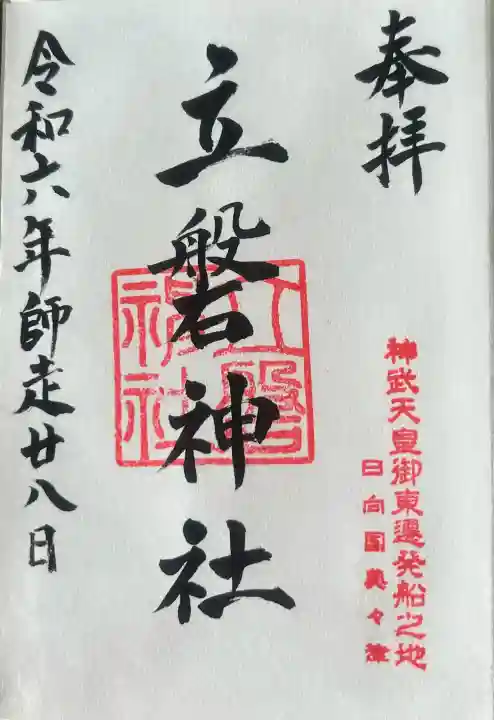 奉拝
神武天皇御東遷発船之地
日向国美々津
立磐神社
立磐神社
令和六年師走廿八日